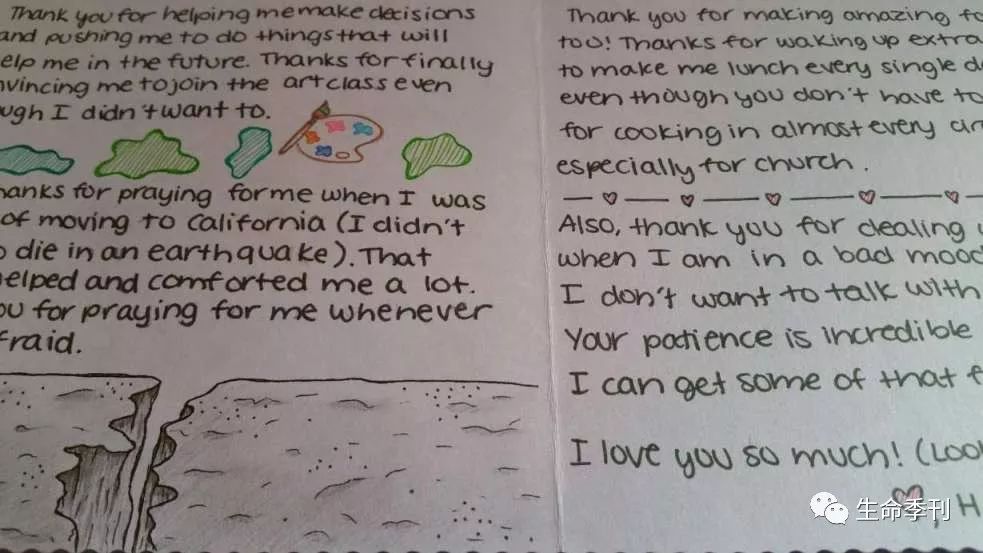 Thank you for helping me make decisions
and pushing me to do things that will
elp me in the future. Thanks for finally
nvincing me to join the art class even
ugh I didn't want to.
hanks for praying for me when I was
of moving to California (I didn't
o die in an earthquake). That
elped and comforted me a lot.
ou for praying for me whenever
fraid.
Thank you for making amazing fo
too! Thanks for waking up extra
to make me lunch every single d
even though you don't have to
for cooking in almost every cir
especially for church.
Also, thank you for dealing
when I am in a bad mood
I don't want to talk with
Your patience is incredible
I can get some of that
I love you so much! (Loo
H
生命季刊